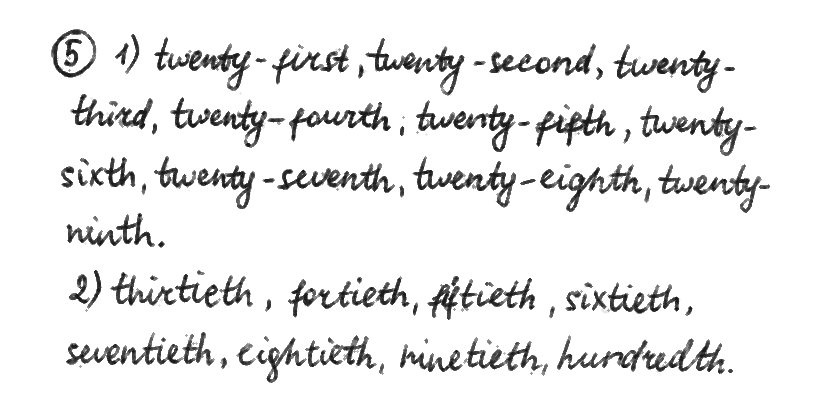 ⑤ 1) twenty-first, twenty-second, twenty-
third, twenty-fourth, twenty-fifth, twenty-
sixth, twenty-seventh, twenty-eighth, twenty-
ninth.
2) thirtieth, fortieth, fiftieth, sixtieth,
seventieth, eightieth, ninetieth, hundredth.